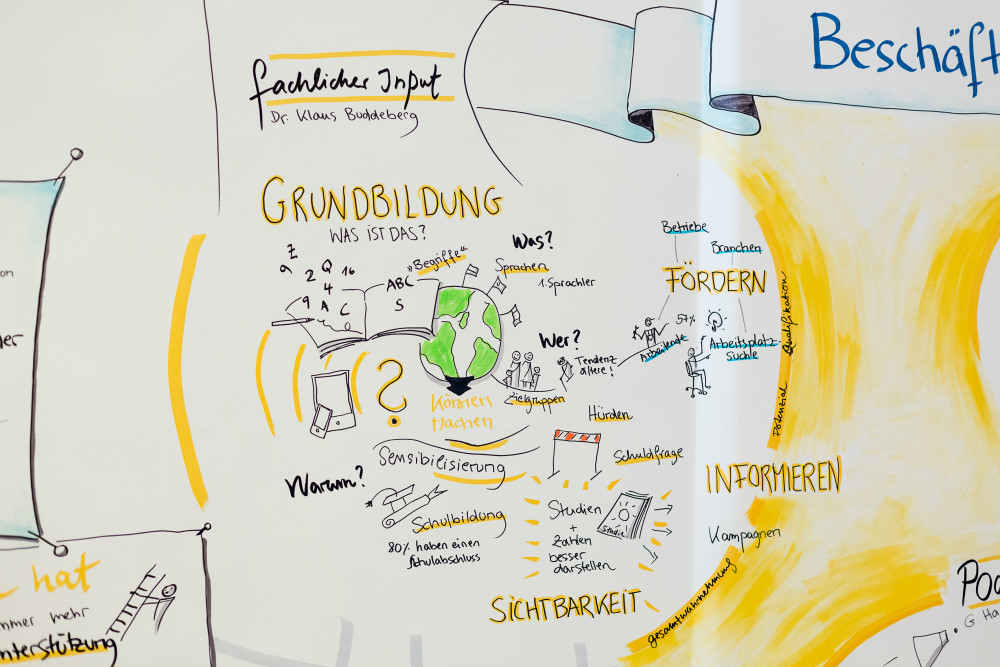 fachlicher Input
Dr. Klaus Buddeberg
Beschäft
GRUNDBILDUNG
WAS IST DAS?
Z
a 2 Q 16
4
9 A C
ABC
S
„Begriffe“
Was?
Sprachen
1. Sprachler
Wer?
Tendenz
ältere!
Zielgruppen
Können
Machen
?
Betriebe
Branchen
FÖRDERN
57%
Arbeitende
Arbeitsplatz-
suche
Qualifikation
Potenzial
Hürden
Schuldfrage
Sensibilisierung
Warum?
Schulbildung
80% haben einen
Schulabschluss
Studien
+
Zahlen
besser
darstellen
Studie
SICHTBARKEIT
INFORMIEREN
Kampagnen
gesamtwahrnehmung
on
ler
hat
mmer mehr
nterstützung
Poc
G Ha